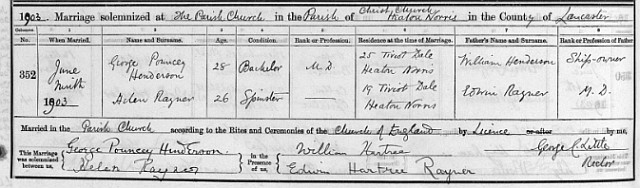 1903. Marriage solemnized at The Parish Church in the Parish of Christ Church Heaton Norris in the County of Lancaster
Columns:— 1 2 3 4 5 6 7 8
No. When Married. Name and Surname. Age. Condition. Rank or Profession. Residence at the time of Marriage. Father's Name and Surname. Rank or Profession of Father
352
June Ninth 1903
George Pouncey Henderson 28 Bachelor M.D. 25 Tiviot Dale Heaton Norris William Henderson Ship-owner
Helen Rayner 26 Spinster —— 19 Tiviot Dale Heaton Norris Edwin Rayner M.D.
Married in the Parish Church according to the Rites and Ceremonies of the Church of England by Licence or after by me,
This Marriage was solemnized between us,
George Pouncey Henderson
Helen Rayner
in the Presence of us,
William Hartree
Edwin Hartree Rayner
George C. Little
Rector